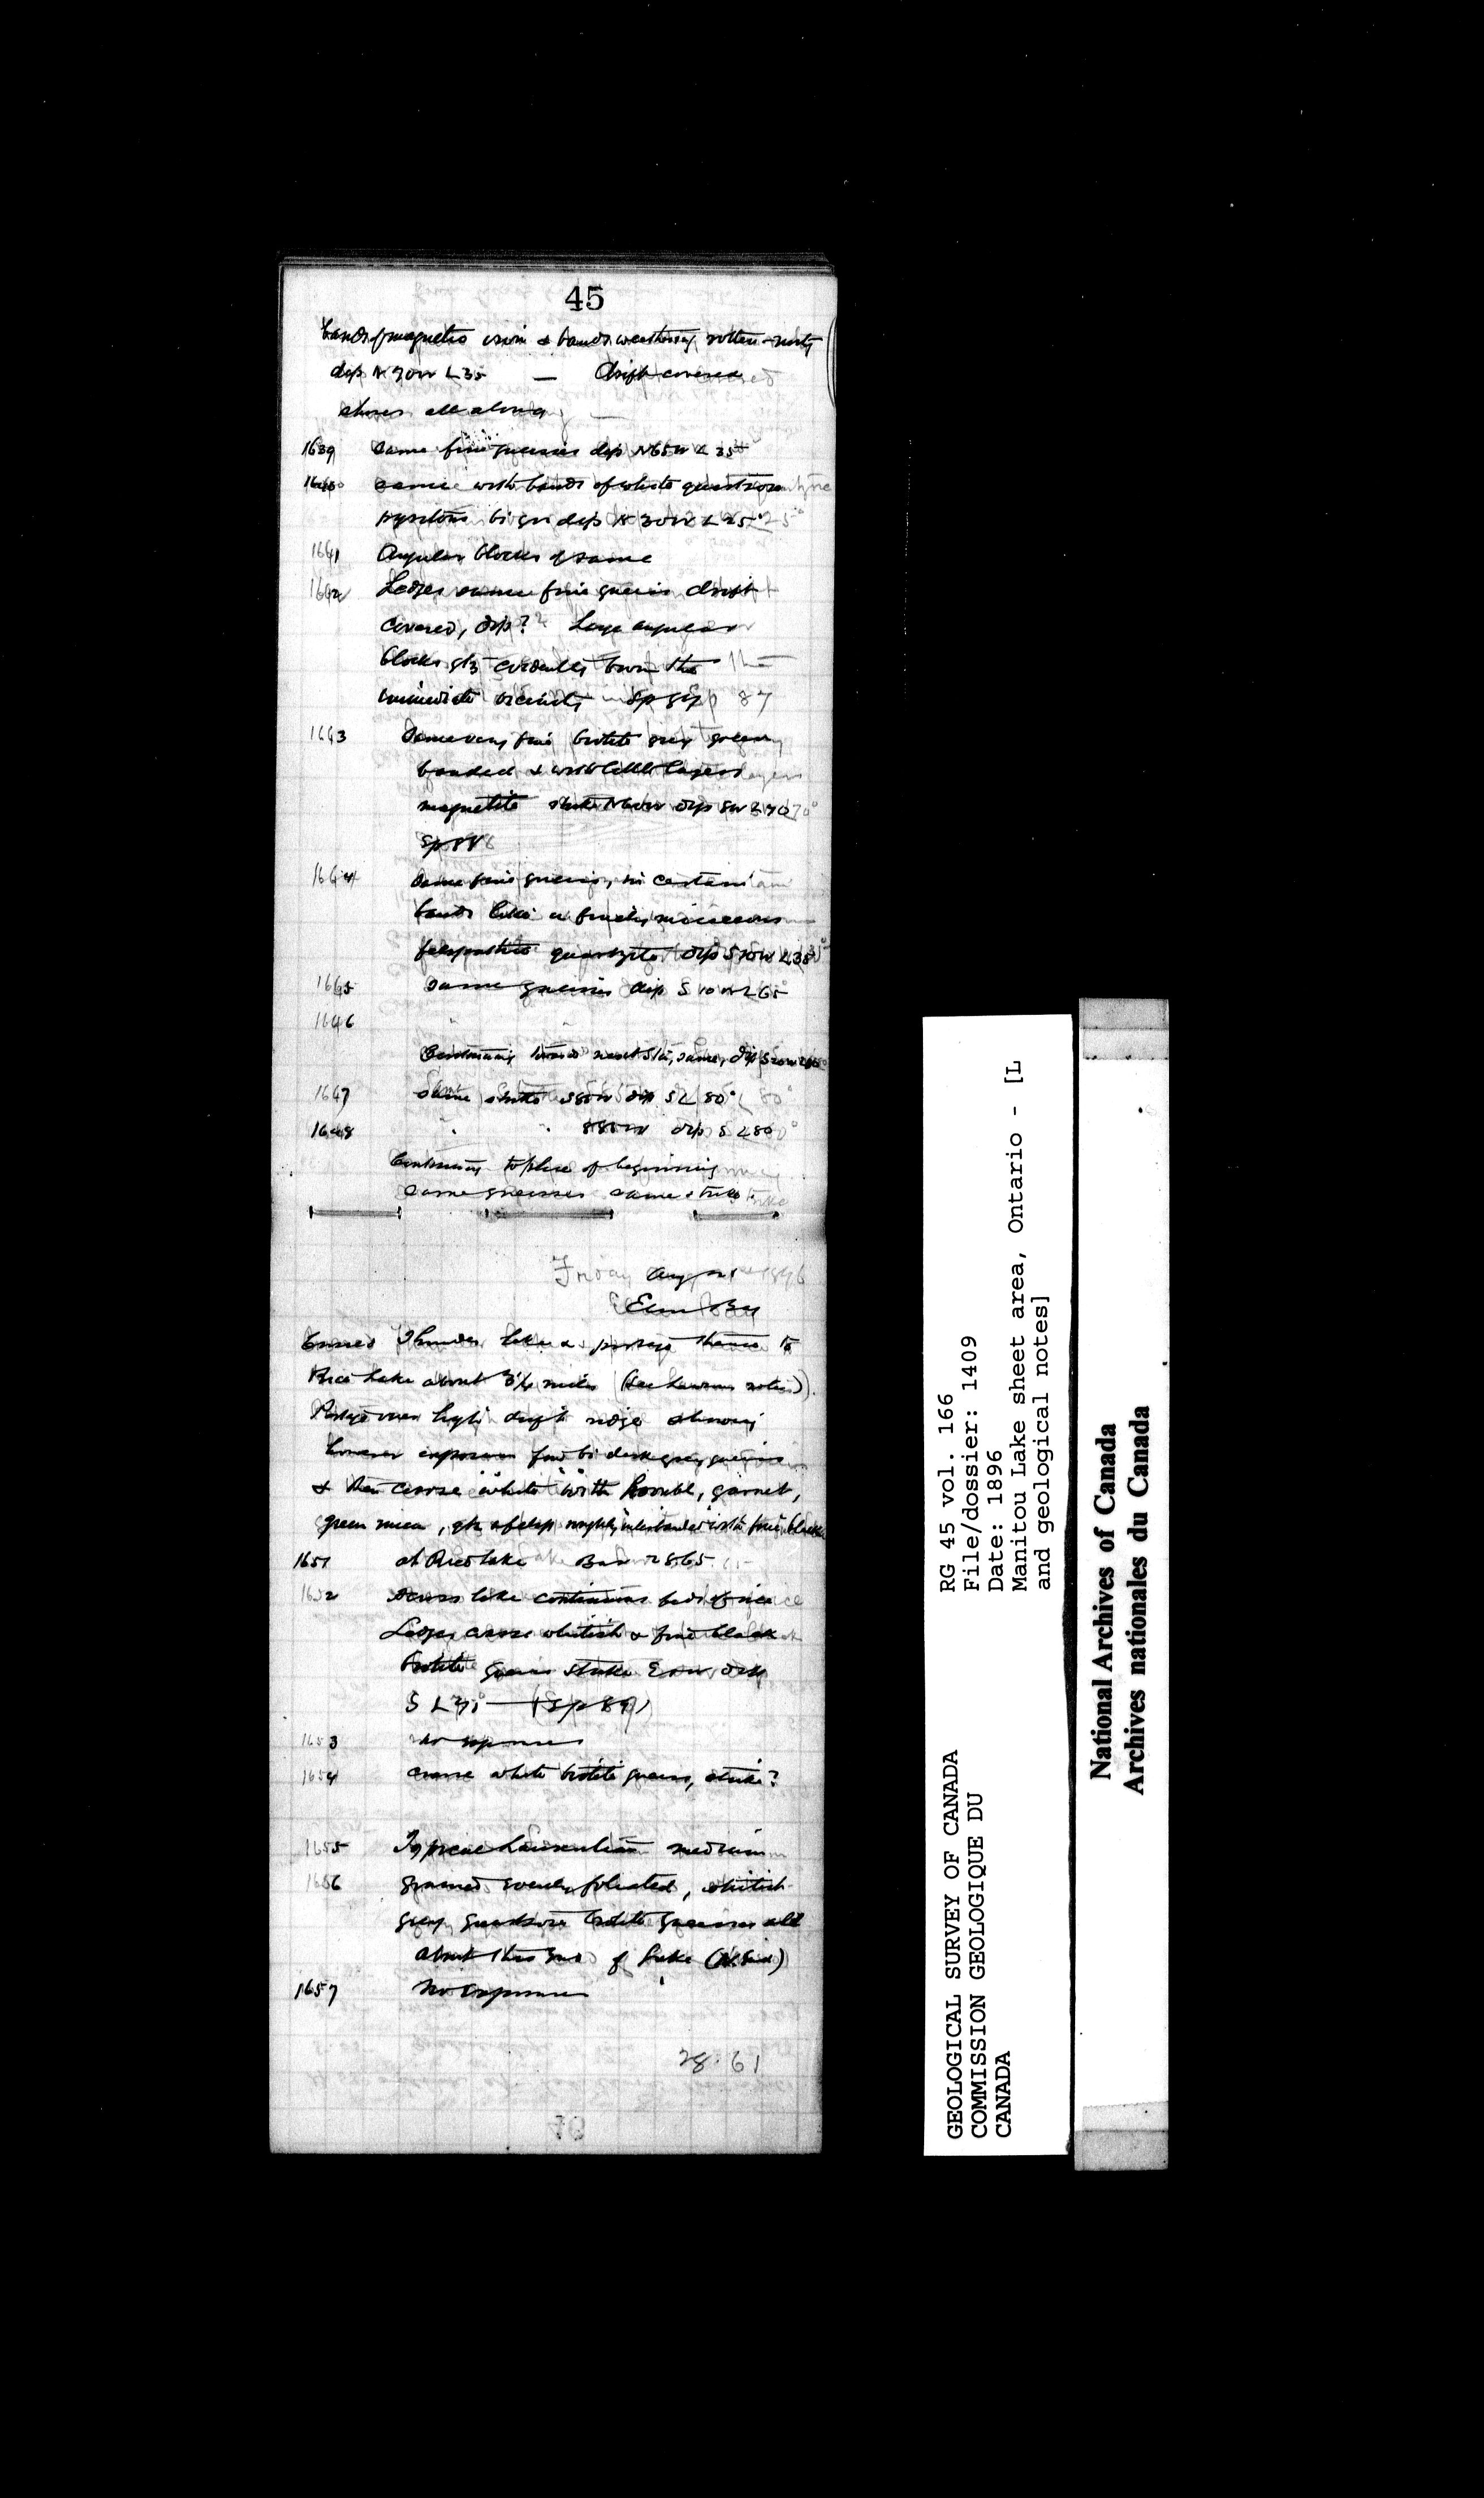 45
bands of magnetic iron & bands weathering rotten-rusty
dip N 70W L35 — Drift covered
shores all along —
1639 same fine gneiss dip N65W L 35
1640 same with bands of white quartzose
bi gn dip N 30W L 25°
1641 Angular blocks of same
1642 Ledges same fine gneiss drift
covered, dip? Large angular
blocks evidently from the
immediate vicinity Sp 87
1643 Same very fine biotite grey gneiss
banded & with little layers
magnetite strike N60W dip SW L 70°
Sp 88
1644 Same fine gneiss, in certain
bands like a finely micaceous
felspathic quartzite dip S10W L35°
1645 same gneiss dip S 10 W L65°
1646 " "
Continuing toward next Sta, same, dip S20W
1647 Same strike S85W dip S L 80°
1648 " " S85W dip S L80°
Continuing to place of beginning
same gneisses same strike
Friday Aug 21st 1896
Elm Bay
Crossed Thunder lake & portage thence to
Rice Lake about 3/4 miles (See Lawsons notes).
Portage over high drift ridge showing
however exposures fine bi dark grey gneiss
& then coarse white with hornbl, garnet,
green mica, qtz & felsp roughly interbanded with fine black
1651 at Rice lake Bar 28.65
1652 Across lake continuous beds of rice
Ledges coarse whitish & fine black
biotite gneiss strike E & W dip
S L 71° — (Sp 89)
1653 no exposures
1654 coarse white biotite gneiss, strike?
1655 Typical Laurentian medium
1656 grained evenly foliated, whitish-
grey quartzose biotite gneisses all
about this end of Lake (N. End)
1657 No exposures
28.61
GEOLOGICAL SURVEY OF CANADA
COMMISSION GEOLOGIQUE DU
CANADA
RG 45 vol. 166
File/dossier: 1409
Date: 1896
Manitou Lake sheet area, Ontario - [L
and geological notes]
National Archives of Canada
Archives nationales du Canada